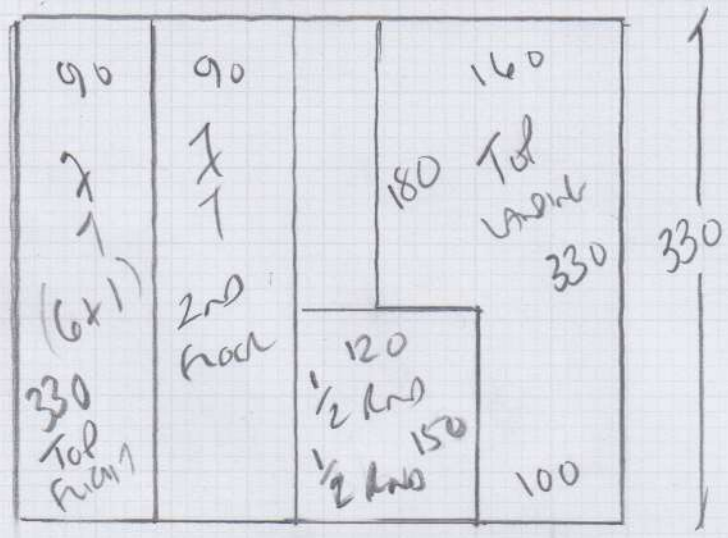 90
7
1
(6x1)
330
Top
Flight
90
7
1
2nd
Floor
160
Top
Landing
180
330
120
1/2 Rnd
150
1/2 Rnd
100
330